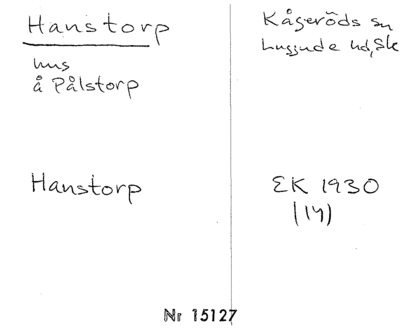 Hanstorp
hus
å Pålstorp
Kågeröds sn
Luggude hd, Sk
Hanstorp
EK 1930
(14)
Nr 15127